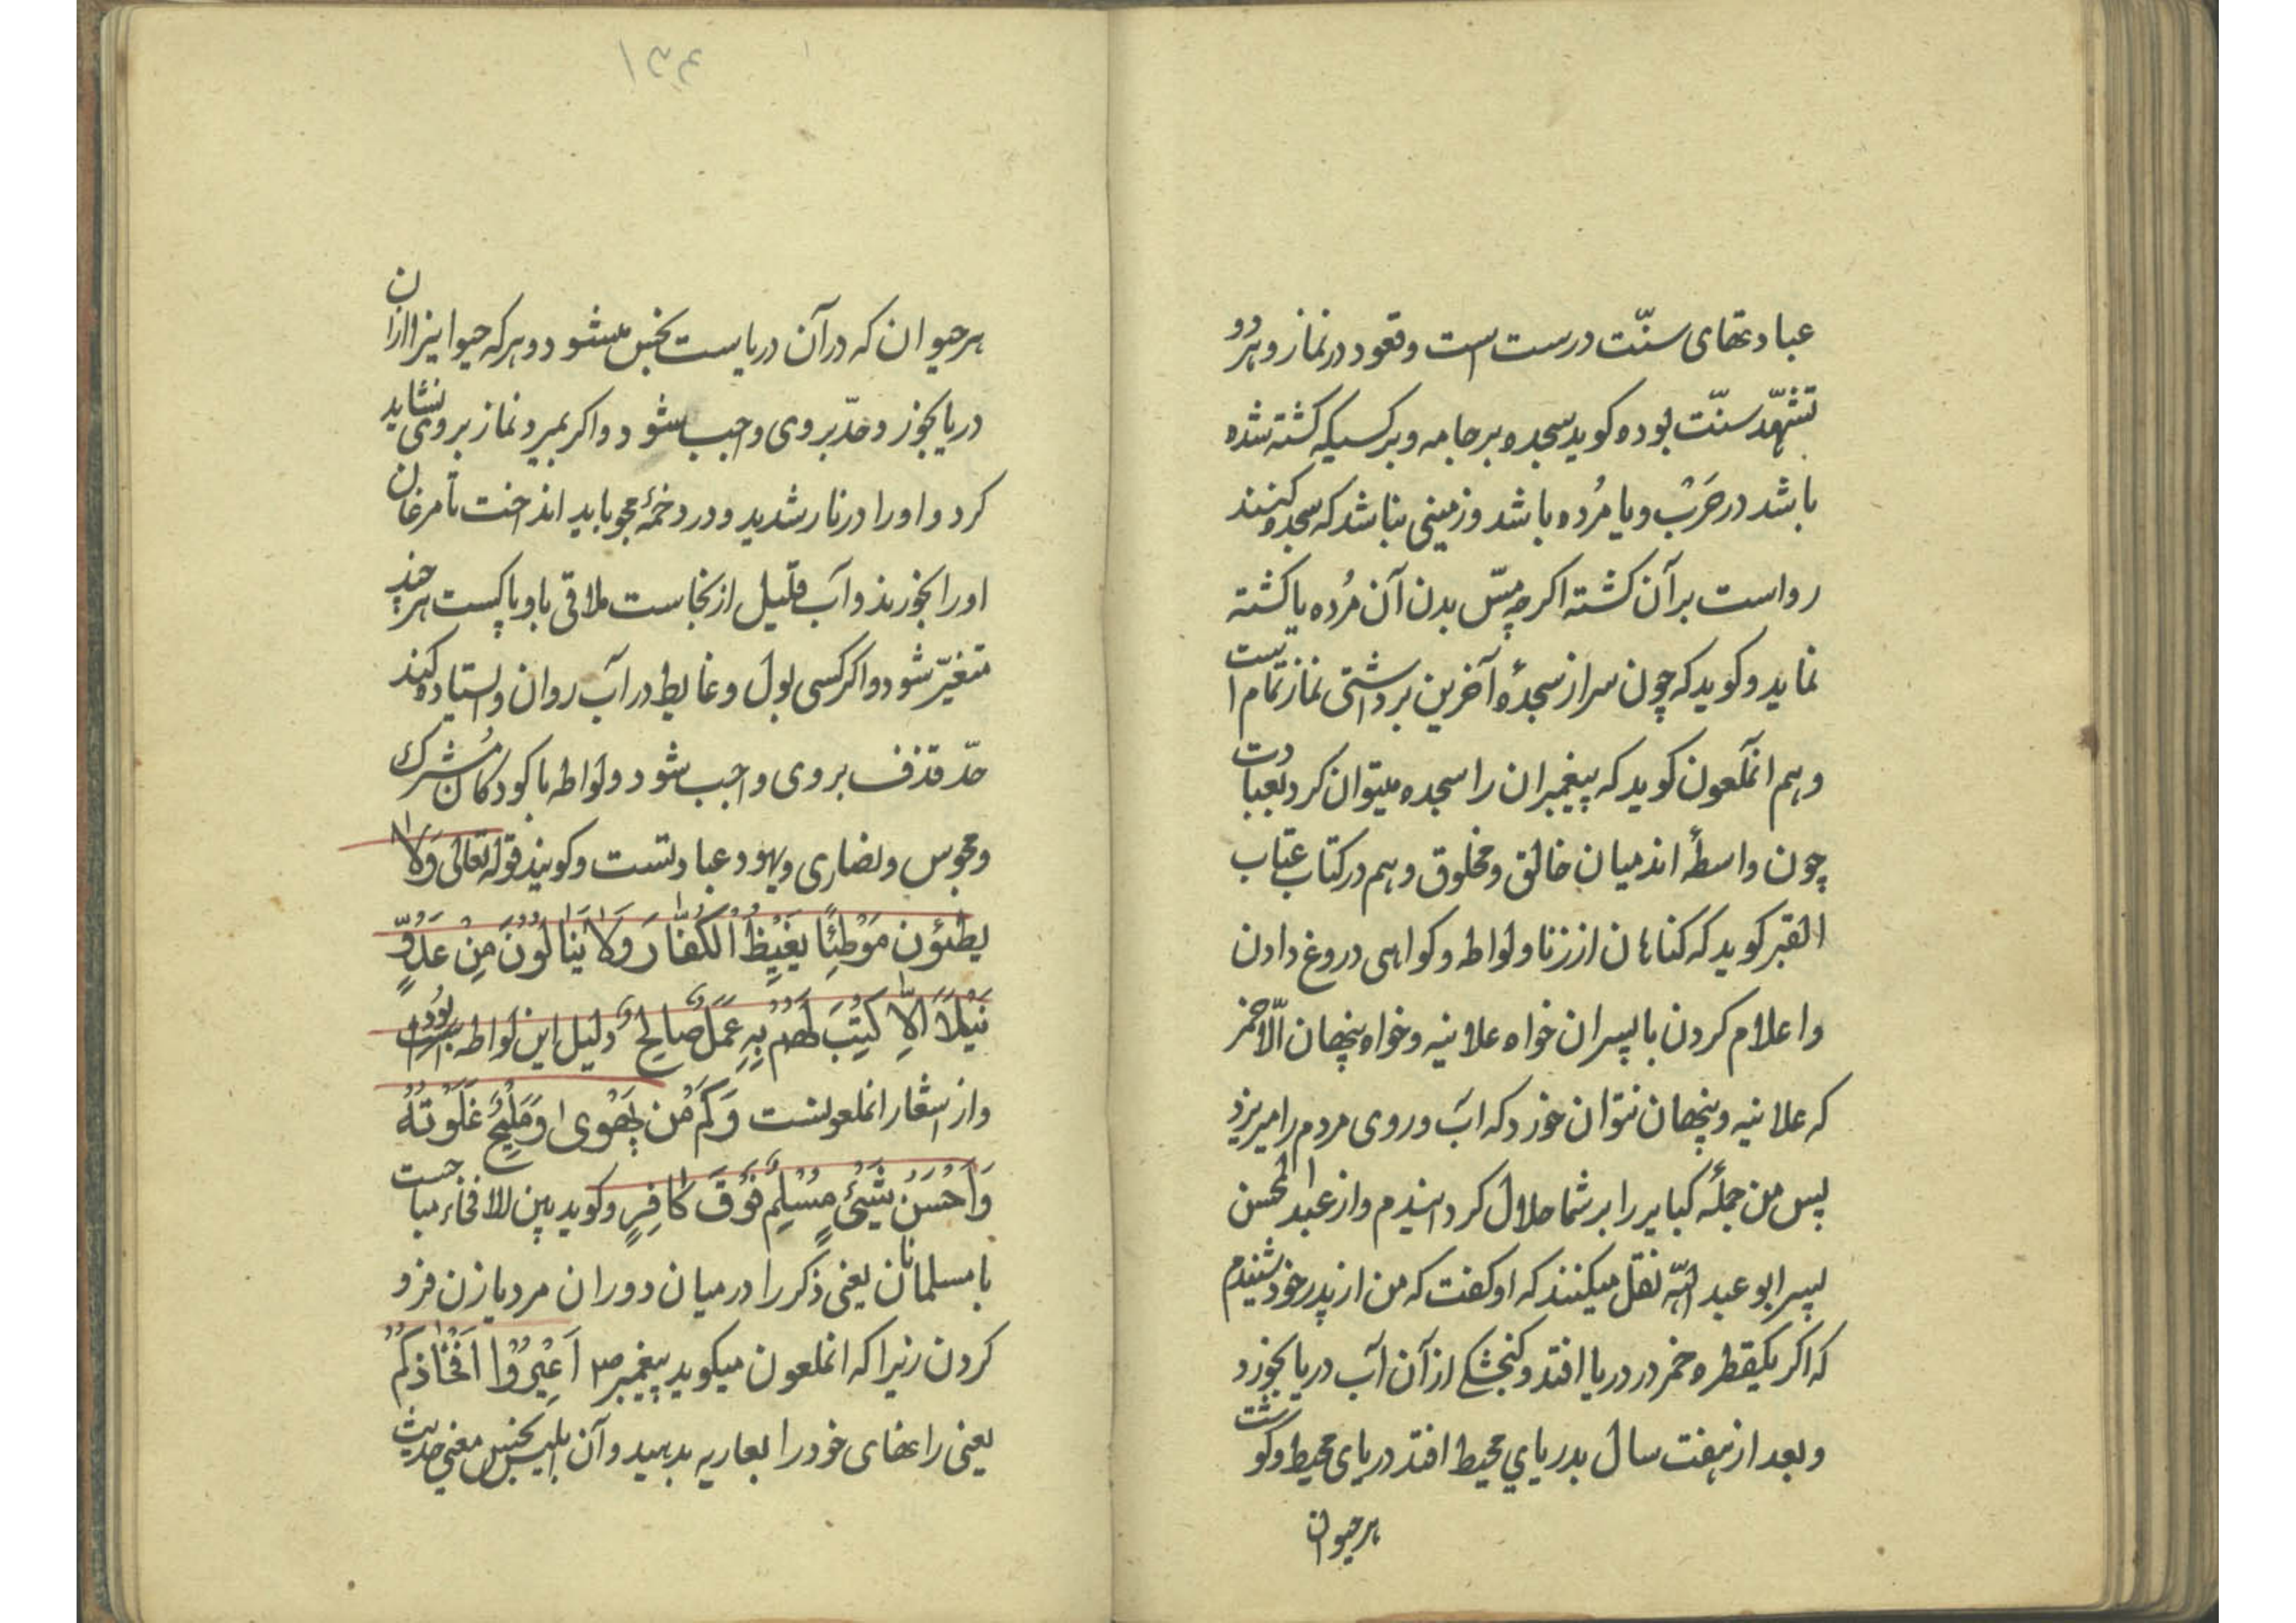 عبادتهای سنّت درست است و قعود در نماز و هر دو
تشهّد سنّت بوده کوید سجده بر جامه و بر کسیکه کشته شده
باشد در حَرْب و یا مُرده باشد و زمینی نباشد که سجده کنند
رواست بر آن کشته اکرچه مسّ بدن آن مُرده یا کشته
نماید و کوید که چون سر از سجدهٔ آخرین برداشتی نماز تمام است
و هم انملعون کوید که پیغمبران را سجده میتوان کرد بعبادت
چون واسطهٔ اند میان خالق و مخلوق و هم در کتاب عتاب
القبر کوید که کناهان از زنا و لواطه و کواهی دروغ دادن
و اعلام کردن با پسران خواه علانیه و خواه پنهان الّا خمر
که علانیه و پنهان نتوان خورد که آب و روی مردم را میریزد
پس من جملهٔ کبایر را بر شما حلال کردانیدم و از عبد المحسن
پسر ابو عبد الله نقل میکنند که او کفت که من از پدر خود شنیدم
که اکر یکقطره خمر در دریا افتد و کنجشکی از آن آب دریا بخورد
و بعد از هفت سال بدریای محیط افتد دریای محیط و کوشت
هر حیوان
۱۳۴
هر حیوان که در آن دریاست نجس میشود و هر که حیوانیرا از آن
دریا بخورد حدّ بر وی واجب شود و اکر بمیرد نماز بر وی نشاید
کرد و او را در نار شدید و در دخمهٔ مجو باید انداخت تا مرغان
او را بخورند و آب قلیل از نجاست ملاقی باو پاکست هرچند
متغیّر شود و اکر کسی بول و غایط در آب روان و استاده کند
حدّ قذف بر وی واجب شود و لواطه با کودکان مُشرک
و مجوس و نصاری و یهود عبادتست و کویند قوله تعالی وَلَا
یطئون مَوْطِئًا یَغِیظُ الْکُفَّارَ وَلَا یَنَالُونَ مِنْ عَدُوٍّ
نَیْلًا اِلَّا کُتِبَ لَهُمْ بِهِ عَمَلٌ صَالِحٌ و دلیل این لواطه بوده است
و از اشعار انملعونست وَکَمْ مِن یَهْوی اوَ مَلِیحٍ عَلَوْتُهُ
وَاَحْسَنُ شَیْئٍ مُسْلِمٌ فَوْقَ کَافِرٍ و کوید بین الافخاء مباحست
با مسلمانان یعنی ذکر را در میان دو ران مرد یا زن فرو
کردن زیرا که انملعون میکوید پیغمبر ص اَعِیرُوا اَفْخَاذَکُمْ
یعنی رانهای خود را بعاریه بدهید و آن ابلیس نجس معنی حدیث